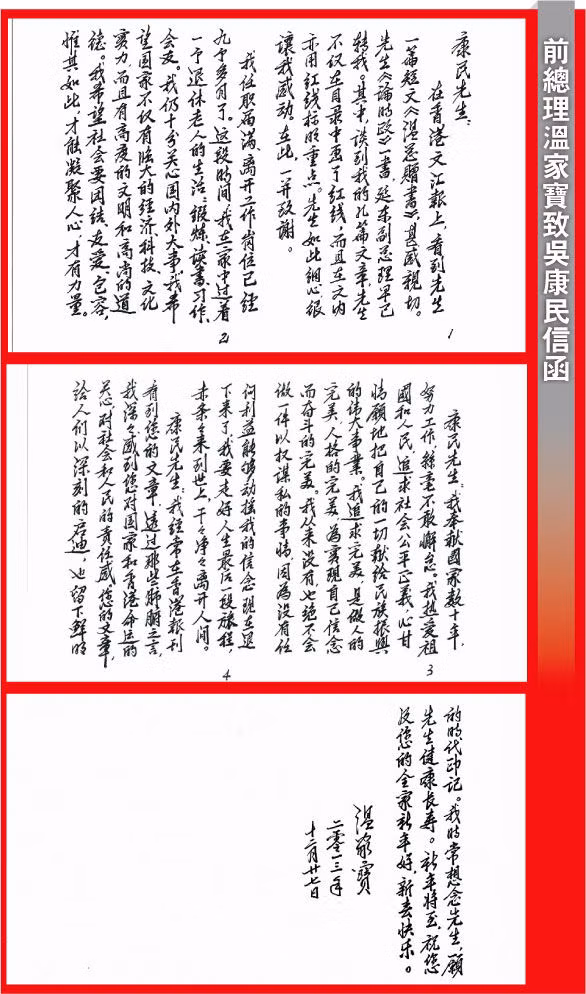 前總理溫家寶致吳康民信函
康民先生：
在香港文汇報上，看到先生
一篇短文《温总贈書》，甚感親切。
先生《論時政》一書，廷东副总理早已
转我。其中，谈到我的几篇文章，先生
不仅在目录中画了红线，而且在文内
亦用红线标明重点。先生如此细心很
讓我感动。在此，一并致谢。
1
我任职届满、离开工作崗位已經
九个多月了。这段時间，我在家中过着
一个退休老人的生活：鍛炼、读書、习作、
会友。我仍十分关心国内外大事。我希
望国家不仅有强大的经济科技、文化
实力，而且有高度的文明和高尚的道
德。我希望社会要团结、友爱、包容，
惟其如此，才能凝聚人心，才有力量。
2
康民先生：我奉献國家数十年，
努力工作，絲毫不敢懈怠。我热爱祖
國和人民，追求社会公平正義，心甘
情願地把自己的一切献给民族振興
的偉大事業。我追求完美，是做人的
完美，人格的完美，为实现自己信念
而奋斗的完美。我从来没有，也绝不会
做一件以权谋私的事情，因为没有任
3
何利益能够动摇我的信念。現在退
下来了，我要走好人生最后一段旅程，
赤条々来到世上，干々净々离开人间。
康民先生：我经常在香港報刊
看到您的文章，透过那些肺腑之言，
我深々感到您对国家和香港命运的
关心，对社会和人民的责任感。您的文章，
给人们以深刻的启迪，也留下鮮明
4
的時代印记。我時常想念先生，願
先生健康长寿。新年将至，祝您
及您的全家新年好，新春快乐。
温家寶
二零一三年
十二月廿七日